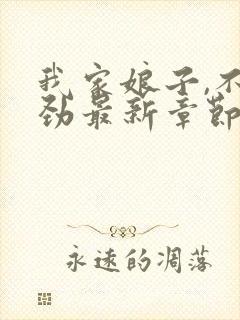 我家娘子,不
劲最新章节
永远的凋落